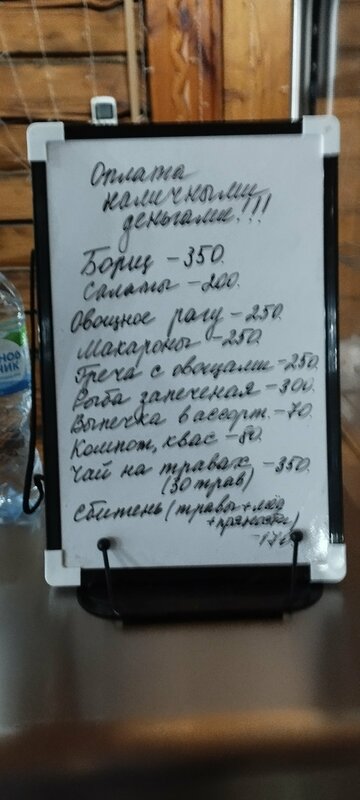 Оплата
наличными
деньгами!!!
Борщ - 350.
Салаты - 200.
Овощное рагу - 250.
Макароны - 250.
Греча с овощами - 250.
Рыба запеченая - 300.
Выпечка в ассорт. - 70.
Компот, квас - 80.
Чай на травах - 350.
(30 трав)
Сбитень (травы + мёд
+ пряности)
НИК